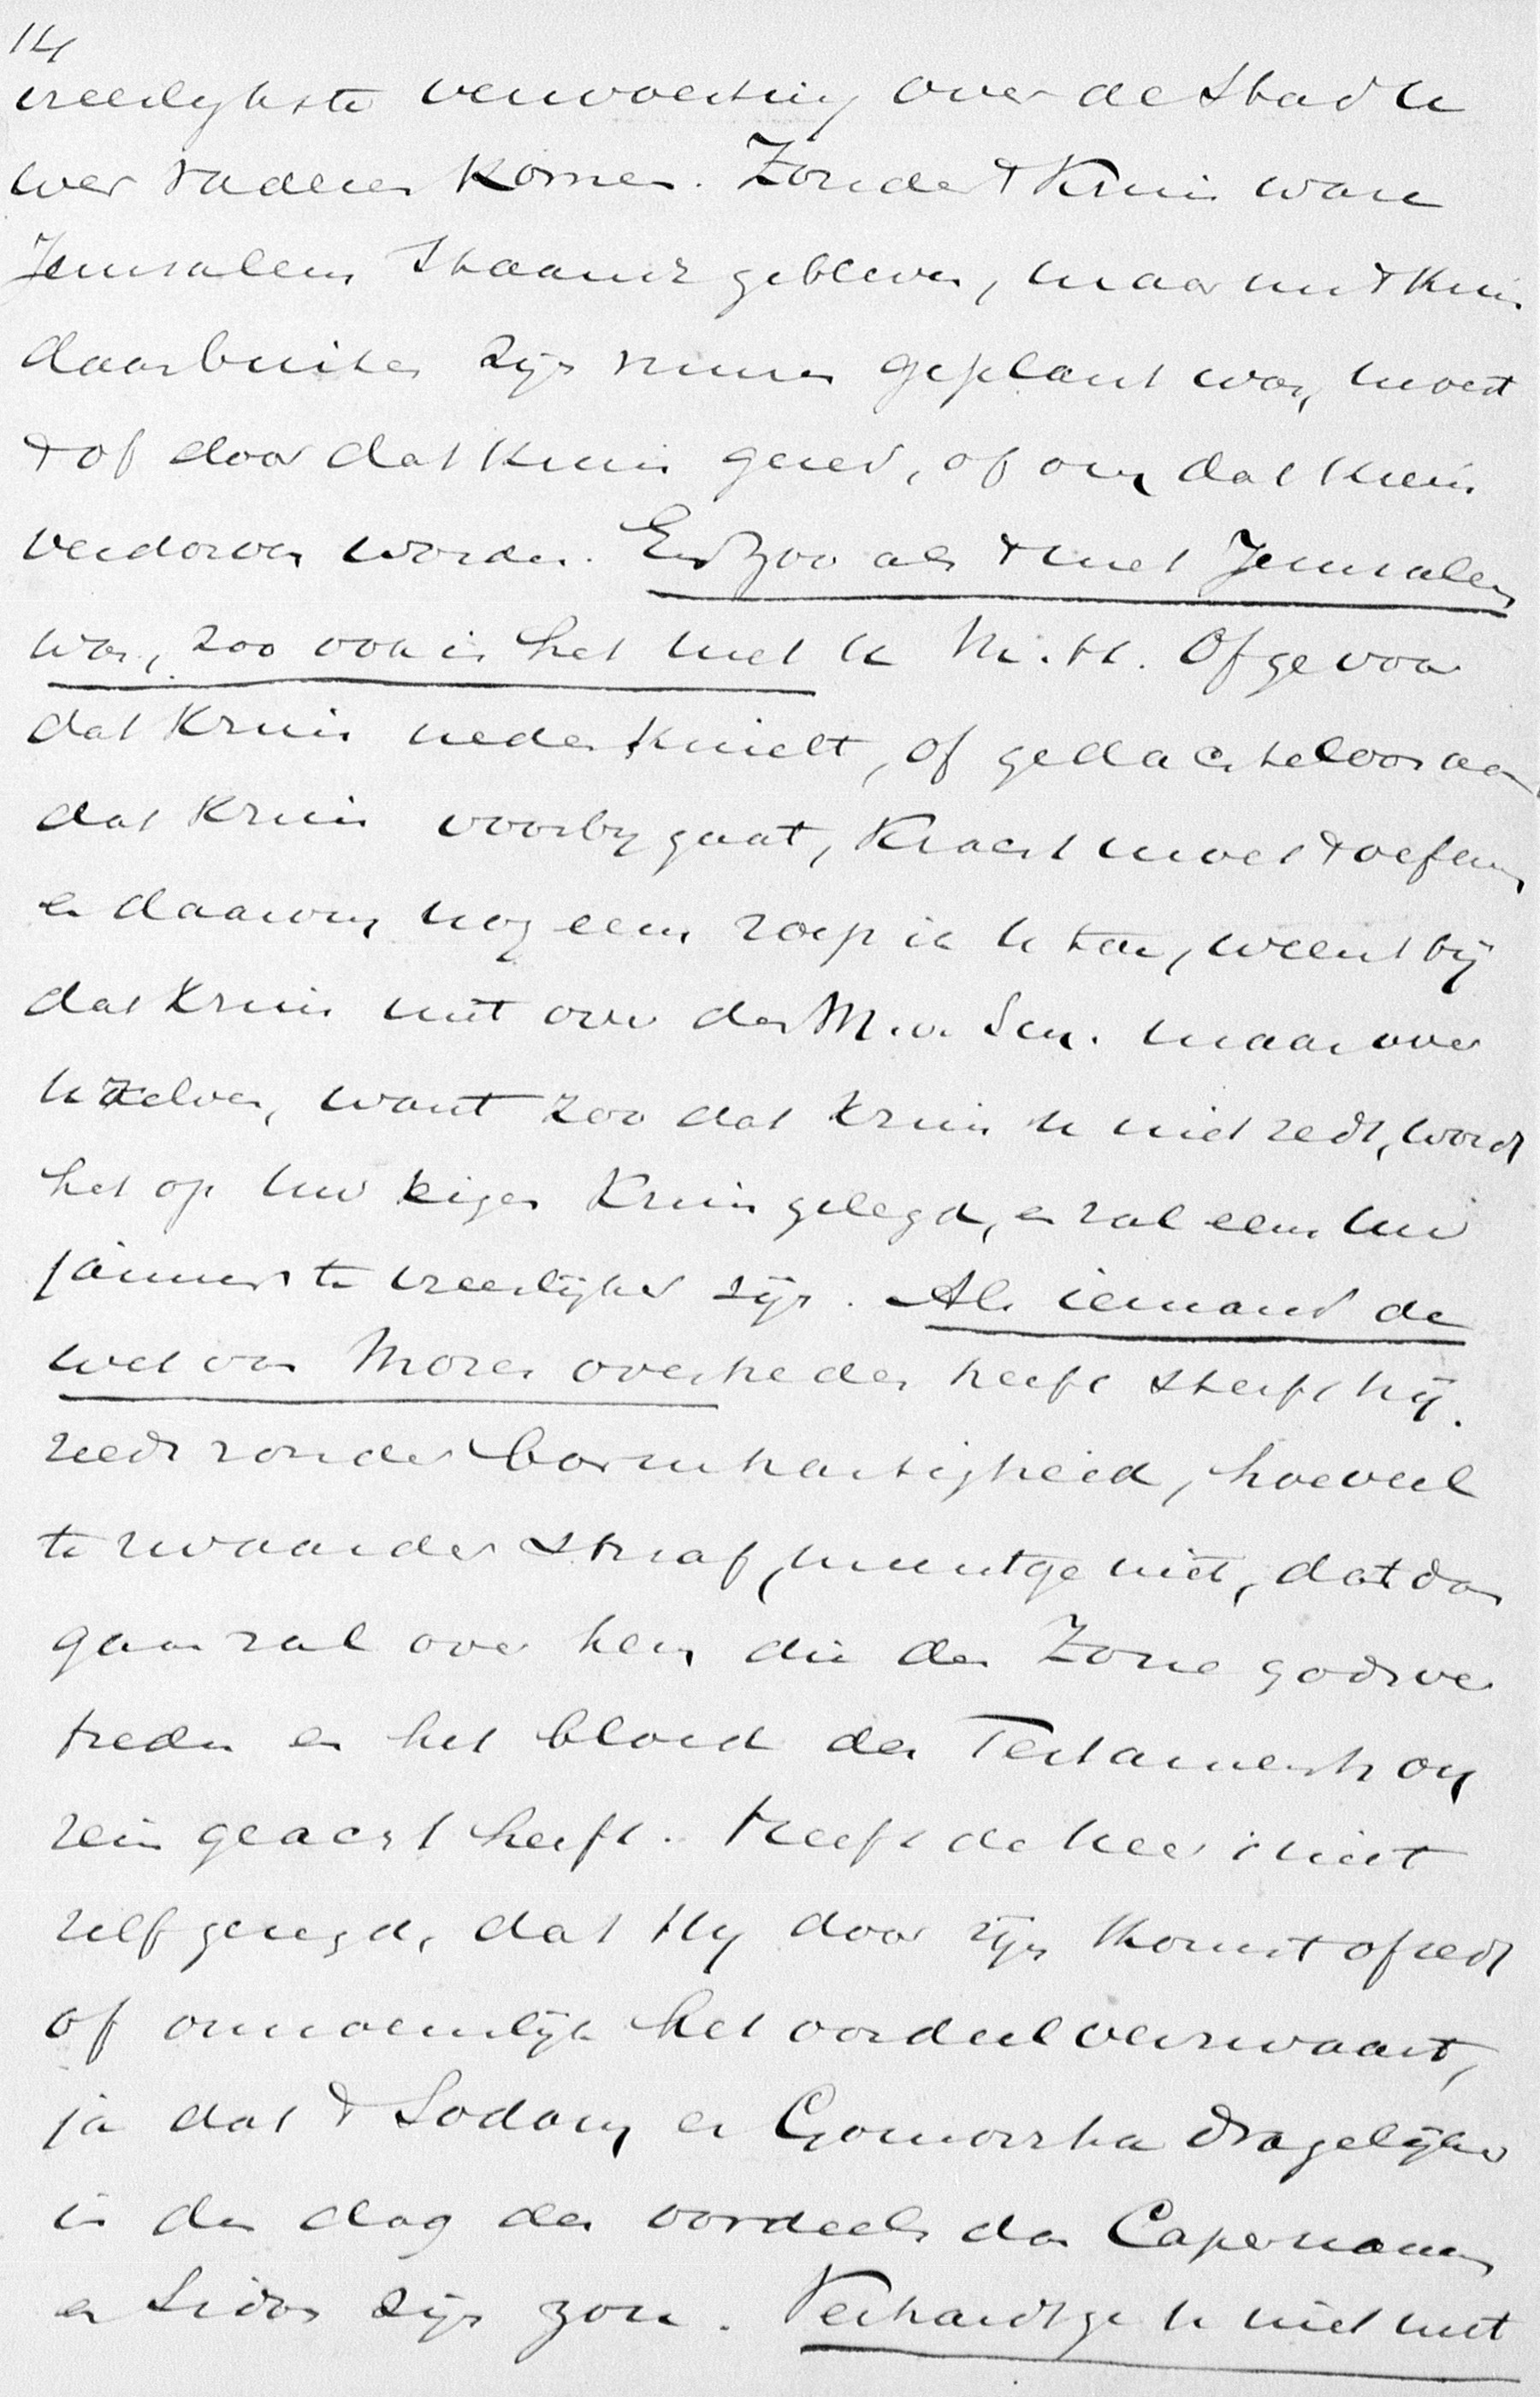 14
vreeslykste verwoesting over de Stad u
wer vaderen komen. Zonder 't Kruis ware
Jerusalem staande gebleven, maar nu 't Kruis
daarbuiten zijn muren geplant was, moest
't of door dat Kruis gered, of om dat Kruis
verdorven worden. En zoo als 't met Jerusalem
was, zoo ook is het met u M. H. Of ge voor
dat Kruis nederknielt, of gedachteloos aan
dat Kruis voorby gaat, Kracht moet 't oefenen
en daarom nog eens roep ik u toe, weent bij
dat Kruis niet over den M. v. Sm. maar over
u zelven, want zoo dat Kruis u niet redt, wordt
het op uw eigen Kruis gelegd, en zal eens uw
jammer te vreeslijker zijn. Als iemand de
wet van Mozes overtreden heeft sterft hij
reeds zonder barmhartigheid, hoeveel
te zwaarder straf, meent ge niet, dat dan
gaan zal over hem die den Zone Gods ver
treden en het bloed des Testaments on
rein geacht heeft. Heeft de Heer 't niet
zelf gezegd, dat Hy door zijn Komst of redt
of onnoemlijk het oordeel verzwaart,
ja dat 't Sodom en Gomorrha dragelijker
in den dag des oordeels dan Capernaum
en Sidon zijn zou. Verhardt ge u niet met